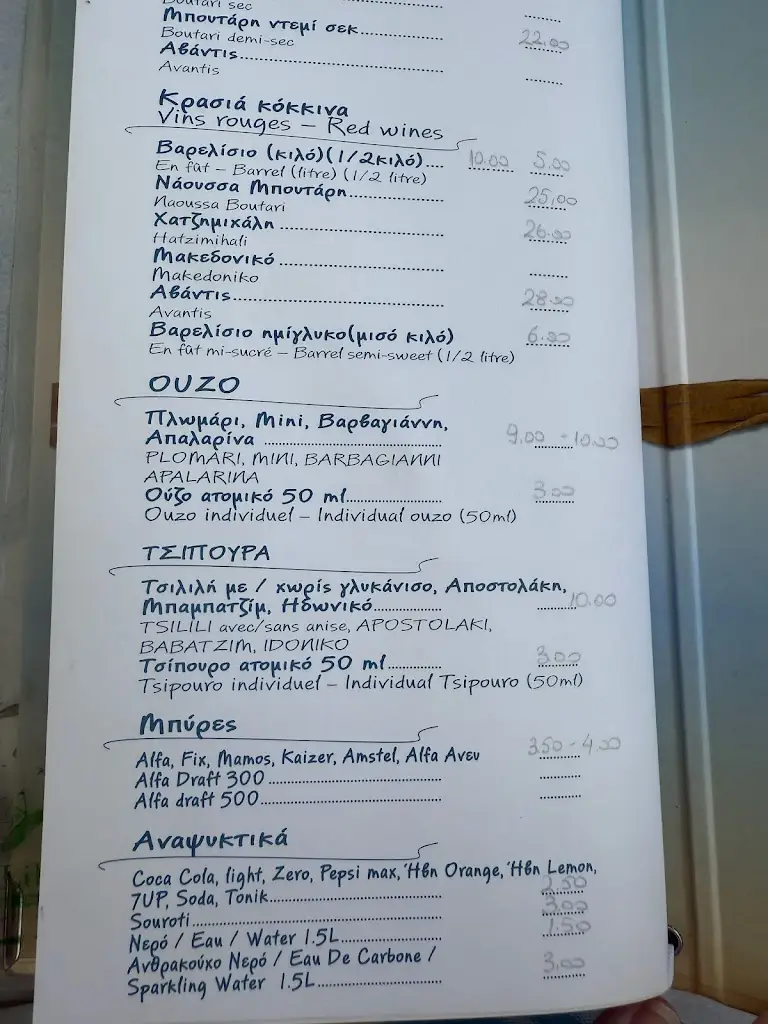 Boutari sec
Μπουτάρη ντεμί σεκ 22.00
Boutari demi-sec
Αβάντις
Avantis
Κρασιά κόκκινα
Vins rouges – Red wines
Βαρελίσιο (κιλό)(1/2κιλό) 10.00 5.00
En fût – Barrel (litre) (1/2 litre)
Νάουσσα Μπουτάρη 25,00
Naoussa Boutari
Χατζημιχάλη 26.00
Hatzimihali
Μακεδονικό
Makedoniko
Αβάντις 28.00
Avantis
Βαρελίσιο ημίγλυκο(μισό κιλό) 6.00
En fût mi-sucré – Barrel semi-sweet (1/2 litre)
ΟΥΖΟ
Πλωμάρι, Mini, Βαρβαγιάννη,
Απαλαρίνα 9,00 - 10.00
PLOMARI, MINI, BARBAGIANNI
APALARINA
Ούζο ατομικό 50 ml 3.00
Ouzo individuel – Individual ouzo (50ml)
ΤΣΙΠΟΥΡΑ
Τσιλιλή με / χωρίς γλυκάνισο, Αποστολάκη,
Μπαμπατζίμ, Ηδωνικό 10.00
TSILILI avec/sans anise, APOSTOLAKI,
BABATZIM, IDONIKO
Τσίπουρο ατομικό 50 ml 3.00
Tsipouro individuel – Individual Tsipouro (50ml)
Μπύρες
Alfa, Fix, Mamos, Kaizer, Amstel, Alfa Ανευ 3.50 - 4.00
Alfa Draft 300
Alfa draft 500
Αναψυκτικά
Coca Cola, light, Zero, Pepsi max, Ήβη Orange, Ήβη Lemon,
7UP, Soda, Tonik 2.50
Souroti 3.00
Νερό / Eau / Water 1.5L 1.50
Ανθρακούχο Νερό / Eau De Carbone /
Sparkling Water 1.5L 3.00